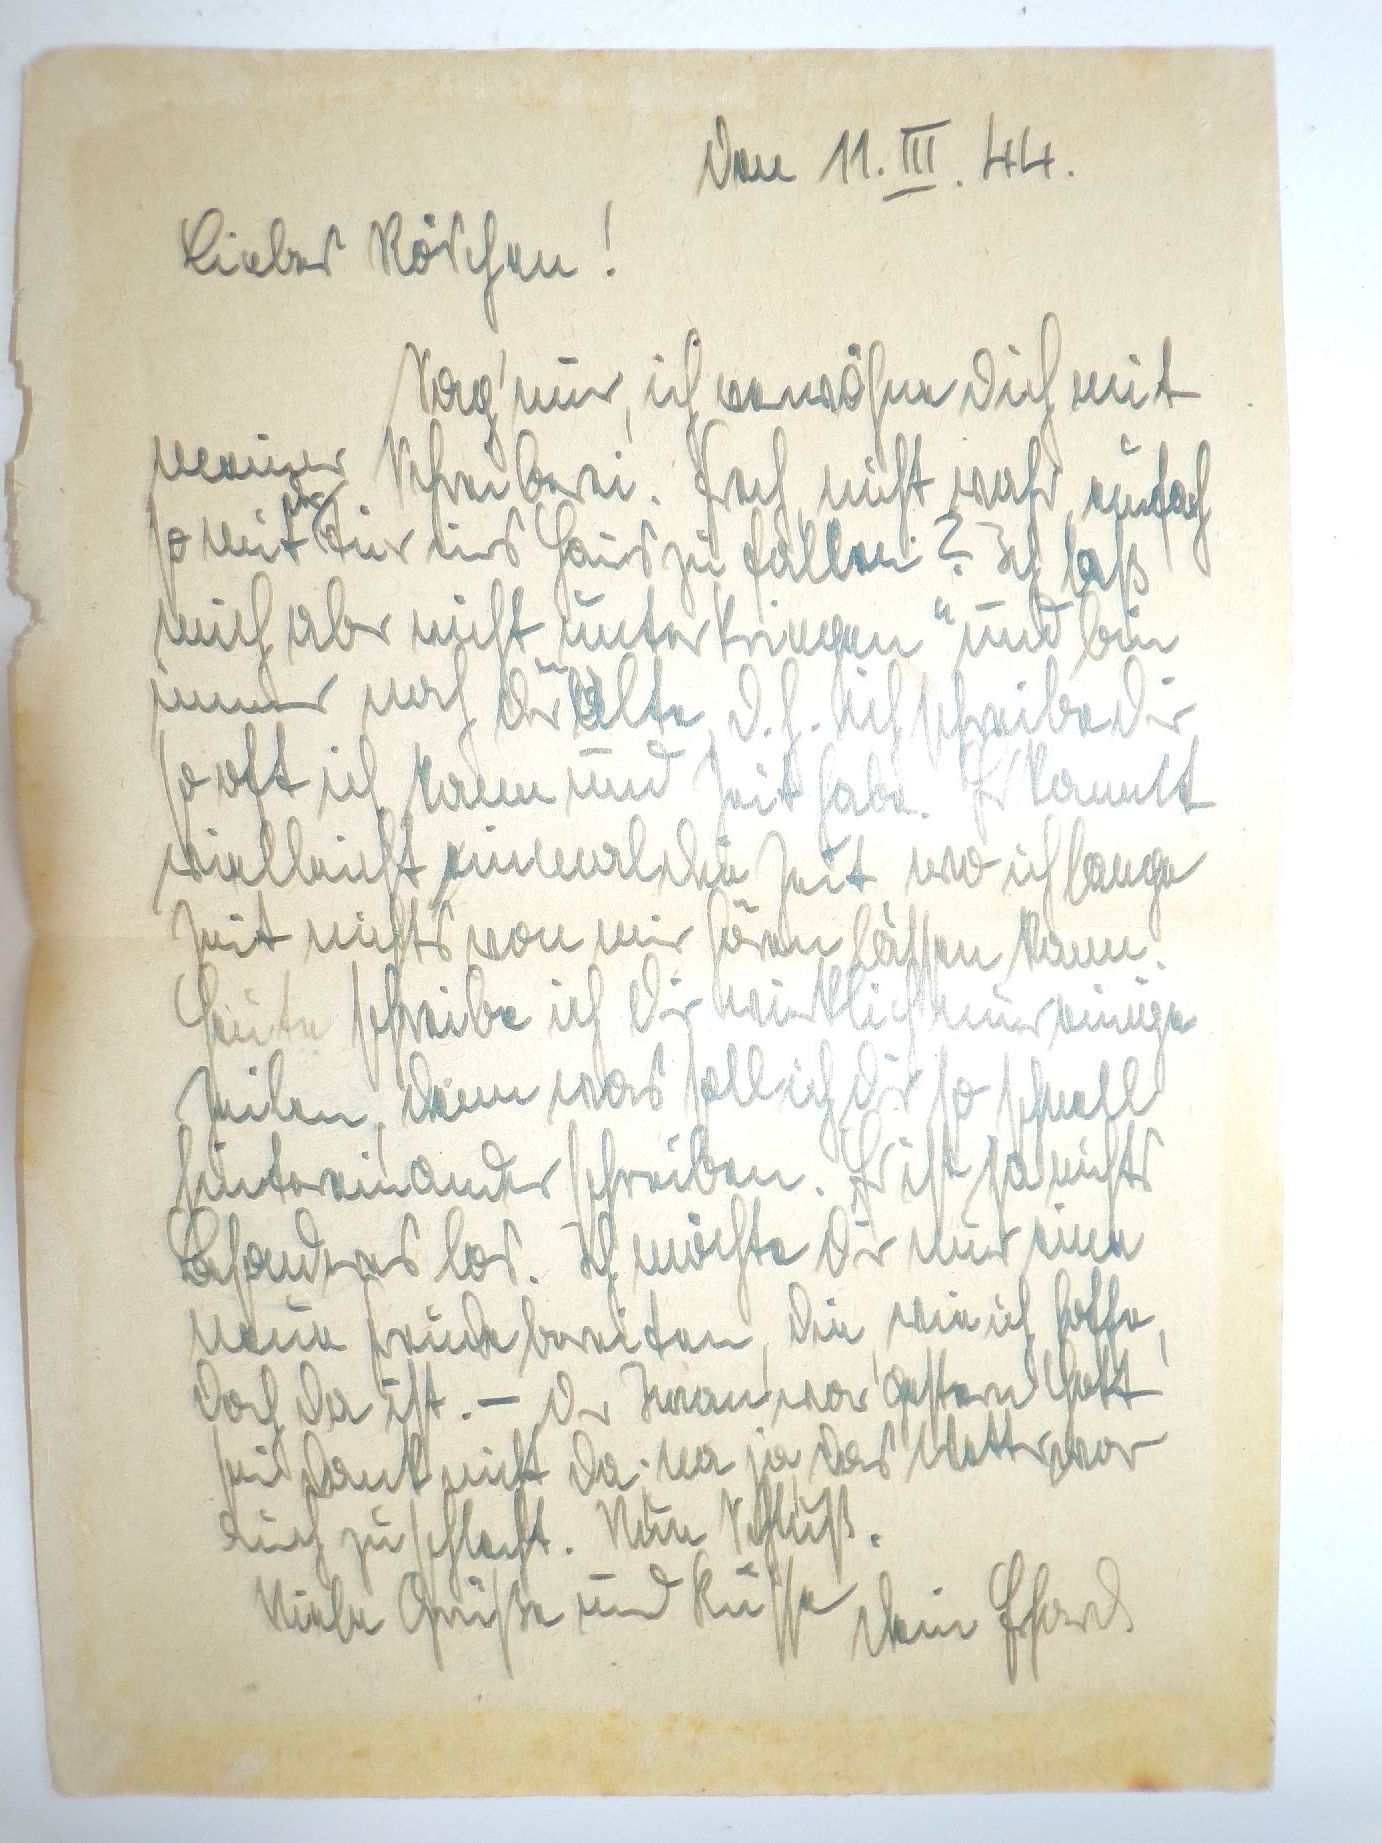 Den 11. III. 44.
Liebes Röschen!
Sag' nur, ich verwöhne Dich mit
meiner Schreiberei. Frech, nicht wahr, einfach
so mit der Tür ins Haus zu fallen? Ich laß
mich aber nicht „unterkriegen" und bin
immer noch der „alte", d.h. ich schreibe Dir
so oft ich kann und Zeit habe. Es kommt
vielleicht einmal die Zeit, wo ich lange
Zeit nichts von mir hören lassen kann.
Heute schreibe ich Dir wirklich nur einige
Zeilen, denn was soll ich Dir so schnell
hintereinander schreiben. Es ist ja nichts
Besonderes los. Ich möchte Dir nur eine
neue Freude bereiten, die, wie ich hoffe,
doch da ist. – Der Iwan war gestern Gott
sei Dank nicht da. na ja das Wetter war
auch zu schlecht. Nun Schluß.
Viele Grüße und Küsse Dein Erhard.